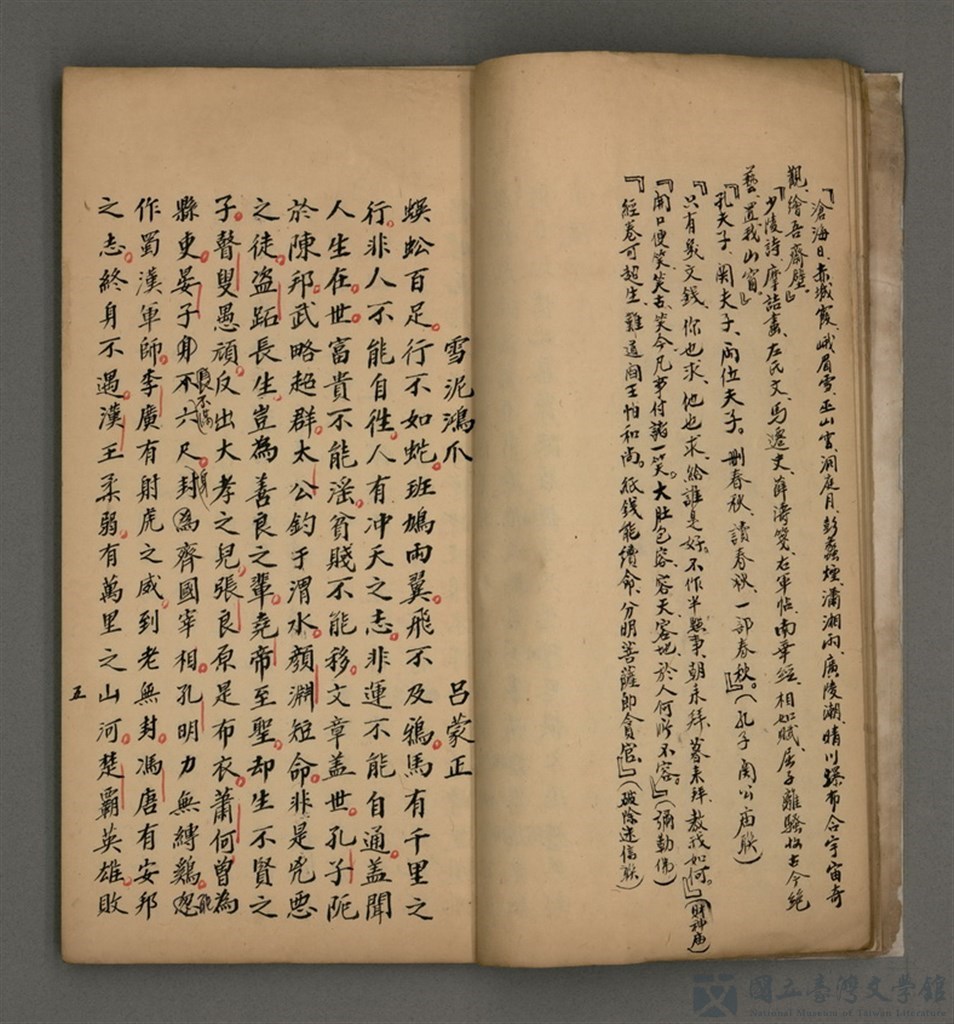 『滄海日、赤城霞、峨眉雪、巫山雲、洞庭月、彭蠡煙、瀟湘雨、廣陵潮、晴川瀑布合宇宙奇
觀、繪吾齋壁。』
『少陵詩、摩詰畫、左氏文、馬遷史、薛濤箋、右軍帖、南華經、相如賦、屈子離騷收古今絕
藝、置我山窗』
『孔夫子、関夫子、兩位夫子。刪春秋、讀春秋、一部春秋。』（孔子関公廟聯）
『只有幾文錢、你也求、他也求、給誰是好。不作半點事、朝來拜、暮來拜、教我如何。』（財神廟）
『開口便笑、笑古、笑今、凡事付諸一笑。大肚包容、容天、容地、於人何所不容。』（彌勒佛）
『經卷可超生、難道閻王怕和尚。紙錢能續命、分明菩薩即貪官。』（破除迷信聯）
雪泥鴻爪　呂蒙正
蜈蚣百足。行不如蛇。班鳩兩翼。飛不及鴉。馬有千里之
行。非人不能自徃。人有冲天之志。非運不能自通。盖聞
人生在世。富貴不能淫。貧賤不能移。文章盖世。孔子阨
於陳邦。武略超群。太公釣于渭水。顏淵短命。非是兇惡
之徒。盜跖長生。豈為善良之輩。堯帝至聖。却生不賢之
子。瞽叟愚頑。反出大孝之兒。張良原是布衣。蕭何曾為
縣吏。晏子身不六尺。封為齊國宰相。孔明力無縛雞。忽
作蜀漢軍師。李廣有射虎之威。到老無封。馮唐有安邦
之志。終身不遇。漢王柔弱。有萬里之山河。楚霸英雄。敗
五
國立臺灣文學館
National Museum of Taiwan Literature